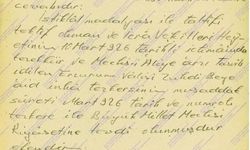 cevabıdır:
İstiklâl madalyası ile taltifi
teklif olunan ve İcra Vekilleri Hey-
etinin 10 Mart 926 tarihli ictimaında
tensib ve Meclisi Âliye arzı tasvib
edilen Erzurum Valisi Zühdi Beye
aid inha tezkeresinin musaddak
sureti Mart 926 tarih ve numrolu
tezkere ile Büyük Millet Meclisi
Riyasetine tevdi olunmuşdur
efendim